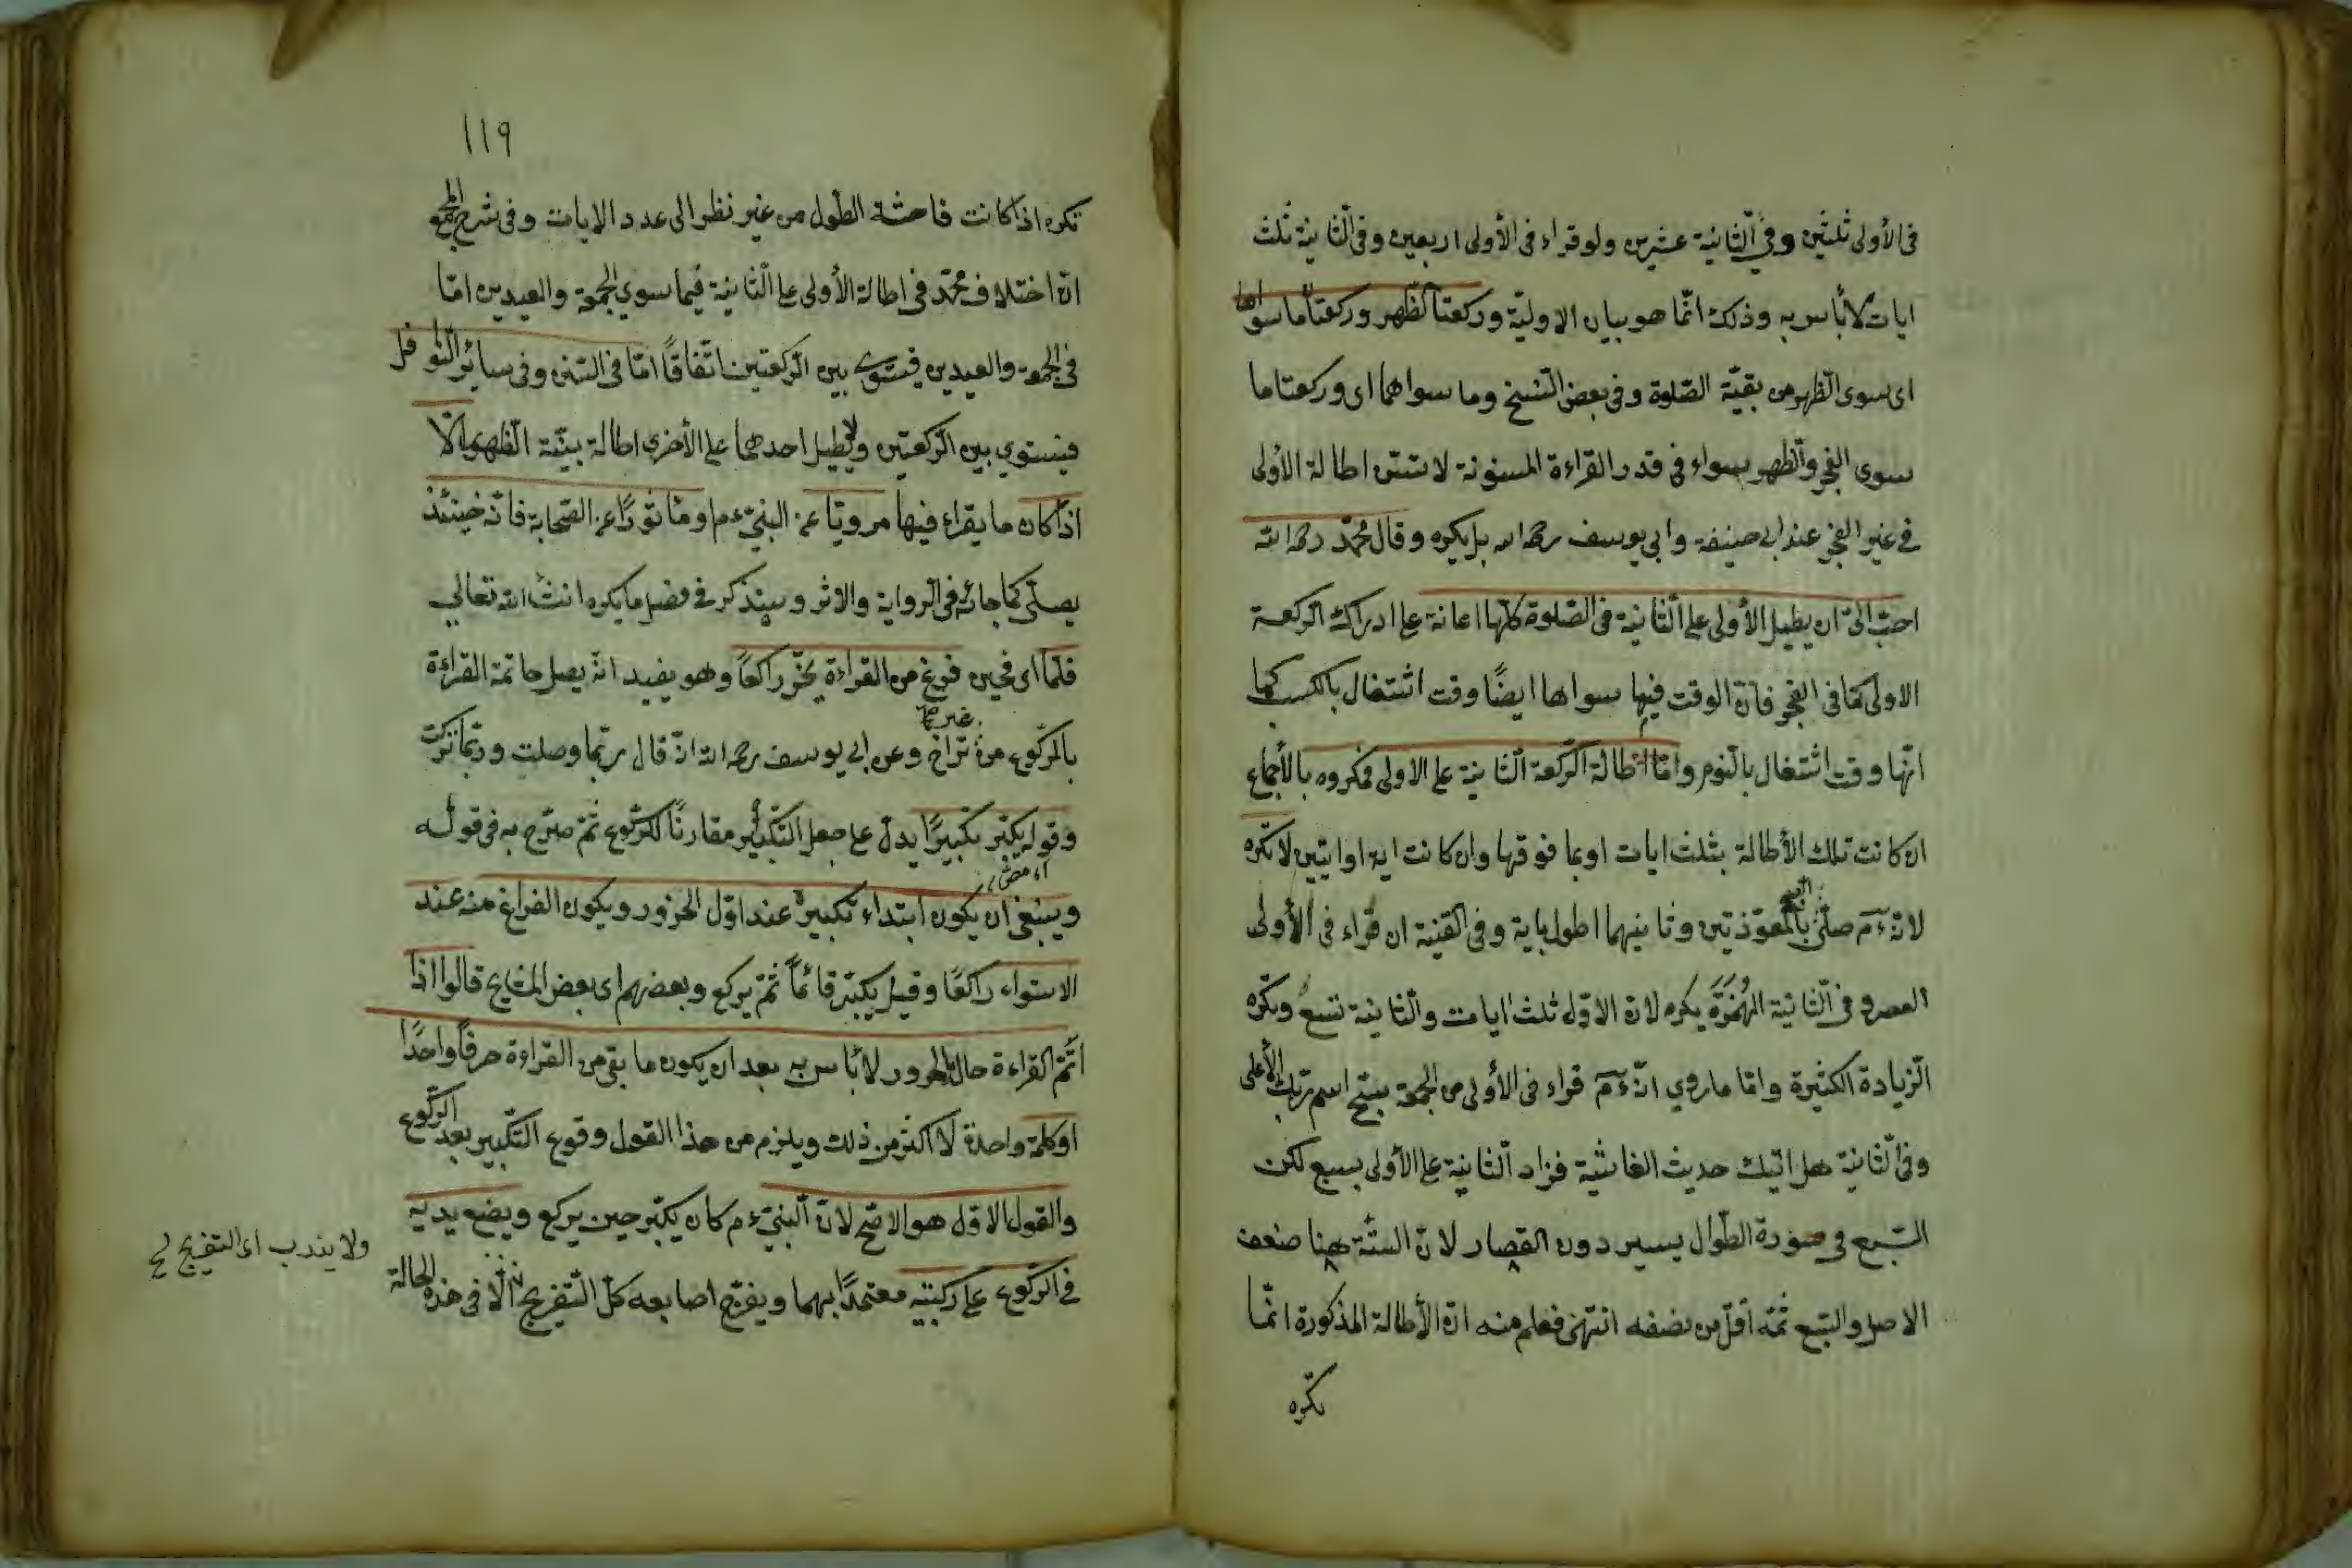 فى الأولى ثلثين وفى الثانية عشرين ولو قراء فى الأولى اربعين وفى الثانية ثلث
ايات لا بأس به وذلك انما هو بيان الاولية وركعتا الظهر وركعتا ما سواها
اى سوى الظهر من بقية الصلوة وفى بعض النسخ وما سواهما اى وركعتا ما
سوى الفجر والظهر سواء فى قدر القراءة المسنونة لا تسن اطالة الأولى
فى غير الفجر عند ابى حنيفة وابى يوسف رحمه الله بل يكره وقال محمد رحمه الله
احب الىّ ان يطيل الأولى على الثانية فى الصلوة كلها اعانة على ادراك الركعة
الاولى كما فى الفجر فان الوقت فيما سواها ايضًا وقت اشتغال بالكسب كما
انها وقت اشتغال بالنوم واما اطالة الركعة الثانية على الاولى فمكروه بالأجماع
ان كانت تلك الأطالة بثلث ايات او بما فوقها وان كانت اية او ايتين لا تكره
لانه ءم صلى بالمعوذتين وثانيهما اطول باية وفى القنية ان قراء فى الأولى
العصر وفى الثانية الهُمَزَة يكره لان الاول ثلث ايات والثانية تسع وتكره
الزيادة الكثيرة واما ما روي انه ءم قراء فى الأولى من الجمعة سبح اسم ربك الأعلى
وفى الثانية هل اتيك حديث الغاشية فزاد الثانية على الأولى بسبع لكن
السبع فى صورة الطول يسير دون القصار لان الستة هنا ضعف
الاصل والسبع ثمه أقل من نصفه انتهى فعلم منه ان الأطالة المذكورة انما
تكره
١١٩
تكره اذا كانت فاحشة الطول من غير نظر الى عدد الايات وفى شرح المجمع
ان اختلاف محمد فى اطالة الأولى على الثانية فيما سوي الجمعة والعيدين اما
فى الجمعة والعيدين فيستوى بين الركعتين اتفاقًا اما فى السنن وفى سائر النوافل
فيستوي بين الركعتين ولا يطيل احدهما على الأخرى اطالة بينة الظهور الا
اذا كان ما يقراء فيها مرويّا عن النبىّ ءم او مأثورًا عن الصحابة فانه حينئذ
يصلى كما جائه فى الرواية والاثر وسيذكر فى فصل ما يكره انشاء الله تعالي
فلما اى فحين فرغ من القراءة يخرّ راكعًا وهو يفيد انه يصل خاتمة القراءة
بالركوع من غير تراخ وعن ابى يوسف رحمه الله انه قال ربما وصلت وربما تركت
وقوله يكبر تكبيرًا يدل على جعل التكبير مقارنًا للركوع ثم صرّح به فى قوله
وينبغى ان يكون ابتداء تكبيره عند اول الخرور ويكون الفراغ منه عند
الاستواء راكعًا وقيل يكبّر قائمًا ثم يركع وبعضهم اى بعض المشايخ قالوا اذا
اتم القراءة حال الخرور لا بأس به بعد ان يكون ما بقى من القراءة حرفًا واحدًا
او كلمة واحدة لا اكثر من ذلك ويلزم من هذا القول وقوع التكبير بعد الركوع
والقول الاول هو الاصح لان النبىّ ءم كان يكبر حين يركع ويضع يديه
فى الركوع على ركبتيه معتمدًا بهما ويفرج اصابعه كل التفريج الا فى هذه الحالة
ولا يندب اى التفريج